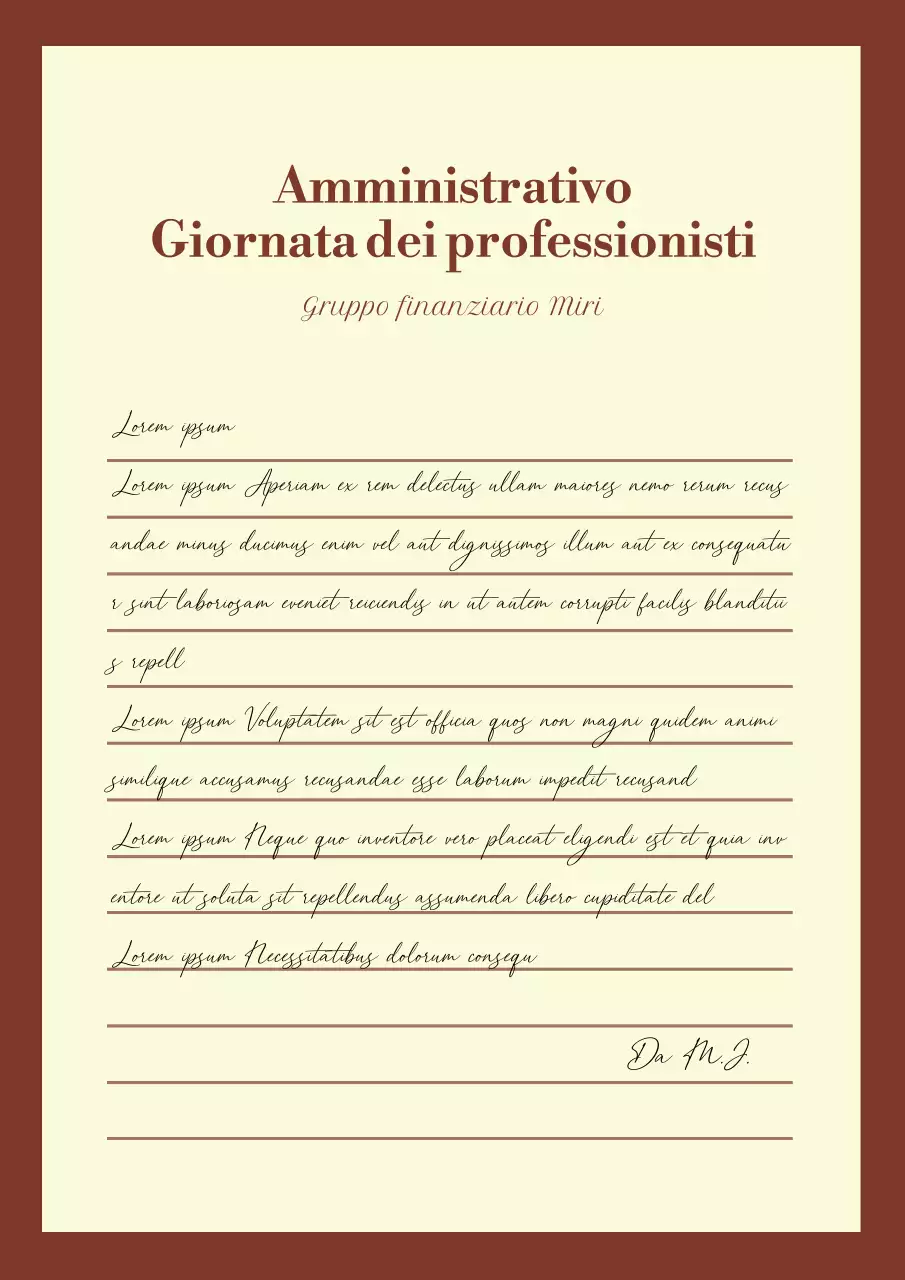 Amministrativo
Giornata dei professionisti
Gruppo finanziario Miri
Lorem ipsum
Lorem ipsum Aperiam ex rem delectus ullam maiores nemo rerum recus
andae minus ducimus enim vel aut dignissimos illum aut ex consequatu
r sint laboriosam eveniet reiciendis in ut autem corrupti facilis blanditii
s repell
Lorem ipsum Voluptatem sit est officia quos non magni quidem animi
similique accusamus recusandae esse laborum impedit recusand
Lorem ipsum Neque quo inventore vero placeat eligendi est et quia inv
entore ut soluta sit repellendus assumenda libero cupiditate del
Lorem ipsum Necessitatibus dolorum consequ
Da M.J.